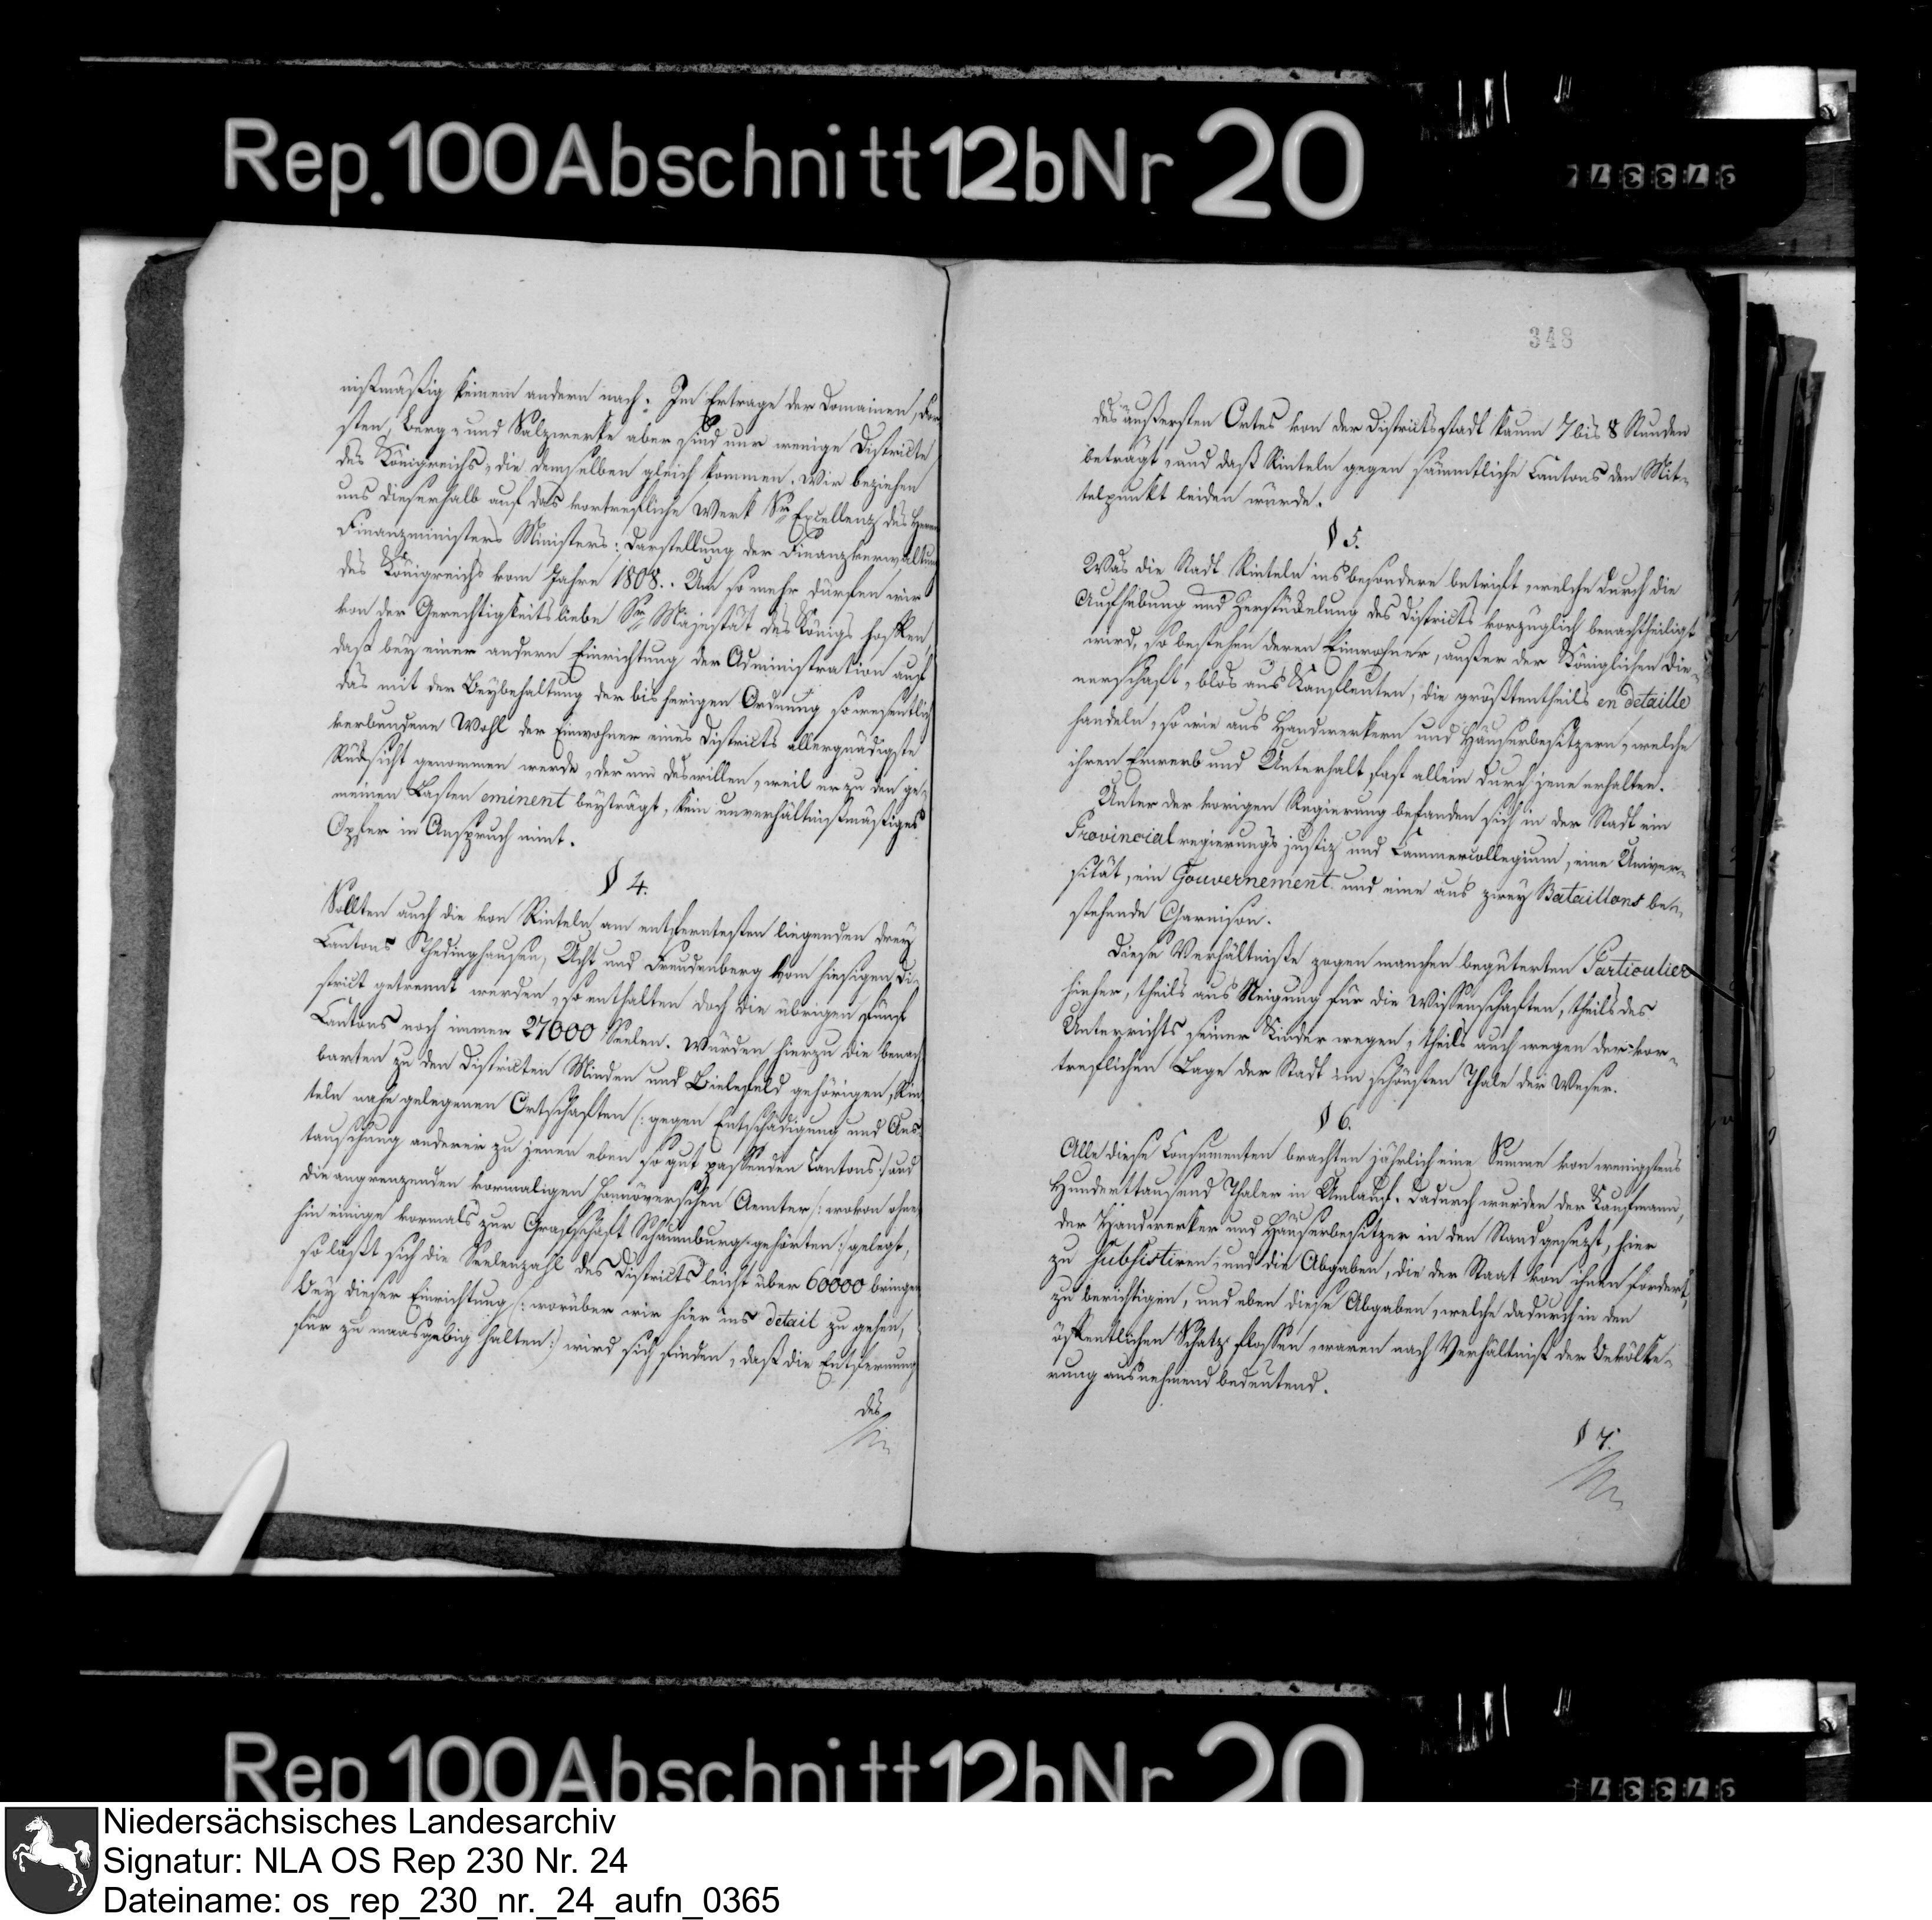 Rep. 100 Abschnitt 12b Nr 20
nißmäßig keinem andern nach. Im Ertrage der Domainen, For
sten, Berg- und Salzwerke aber sind nur wenige Districte
des Königreichs, die demselben gleich kommen. Wir beziehen
uns dieserhalb auf das vortrefliche Werk Sr Excellenz des Herrn
Finanzministers Ministers: Darstellung der Finanzverwaltung
des Königreichs vom Jahre 1808. Um so mehr dürfen wir
von der Gerechtigkeitsliebe Sr Majestät des Königs hoffen,
daß bey einer andern Einrichtung der Administration auf
das mit der Beybehaltung der bisherigen Ordnung so wesentlich
verbundene Wohl der Einwohner eines Districts allergnädigste
Rüksicht genommen werde, der um deswillen, weil er zu den ge-
meinen Lasten eminent beyträgt, kein unverhältnißmäßiges
Opfer in Anspruch nimt.
§ 4.
Sollten auch die von Rinteln am entferntesten liegenden drey
Cantons Thedinghausen, Ucht und Freudenberg vom hiesigen Di-
strict getrennt werden, so enthalten doch die übrigen fünf
Cantons noch immer 27000 Seelen. Würden hierzu die benach
barten zu den Districten Minden und Bielefeld gehörigen, Rin
teln nahe gelegenen Ortschaften (: gegen Entschädigung und Aus-
tauschung anderer zu jenen eben so gut passenden Cantons :) und
die angrenzenden vormaligen hannöverschen Aemter (: wovon ohne
hin einige vormals zur Grafschaft Schaumburg gehörten :) gelegt,
so läßt sich die Seelenzahl des Districts leicht über 60000 bringen
Bey dieser Einrichtung (: worüber wir hier ins detail zu gehen,
für zu maasgebig halten :) wird sich finden, daß die Entfernung
des
348
des äußersten Ortes von der Districtsstadt kaum 7 bis 8 Stunden
beträgt, und daß Rinteln gegen sämmtliche Cantons den Mit-
telpunkt leiden würde.
§ 5.
Was die Stadt Rinteln insbesondere betrift, welche durch die
Aufhebung und Zerstückelung des Districts vorzüglich benachtheiligt
wird, so bestehen deren Einwohner, außer der Königlichen Die-
nerschaft, blos aus Kaufleuten, die größtentheils en detaille
handeln, so wie aus Handwerkern und Häuserbesitzern, welche
ihren Erwerb und Unterhalt fast allein durch jene erhalten.
Unter der vorigen Regierung befanden sich in der Stadt ein
Provincialregierungs justiz und Cammercollegium, eine Univer-
sität, ein Gouvernement und eine aus zwey Bataillons be-
stehende Garnison.
Diese Verhältniße zogen manchen begüterten Particulier
hieher, theils aus Neigung für die Wissenschaften, theils des
Unterrichts seiner Kinder wegen, theils auch wegen der vor-
treflichen Lage der Stadt im schönsten Thale der Weser.
§ 6.
Alle diese Consumenten brachten jährlich eine Summe von wenigstens
Hunderttausend Thaler in Umlauf. Dadurch wurden der Kaufmann,
der Handwerker und Häuserbesitzer in den Stand gesezt, hier
zu subsistiren, und die Abgaben, die der Staat von ihnen fordert,
zu berichtigen, und eben diese Abgaben, welche dadurch in den
öffentlichen Schatz flossen, waren nach Verhältniß der Bevölke-
rung ausnehmend bedeutend.
§ 7.
Rep 100 Abschnitt 12b Nr 20
Niedersächsisches Landesarchiv
Signatur: NLA OS Rep 230 Nr. 24
Dateiname: os_rep_230_nr._24_aufn_0365